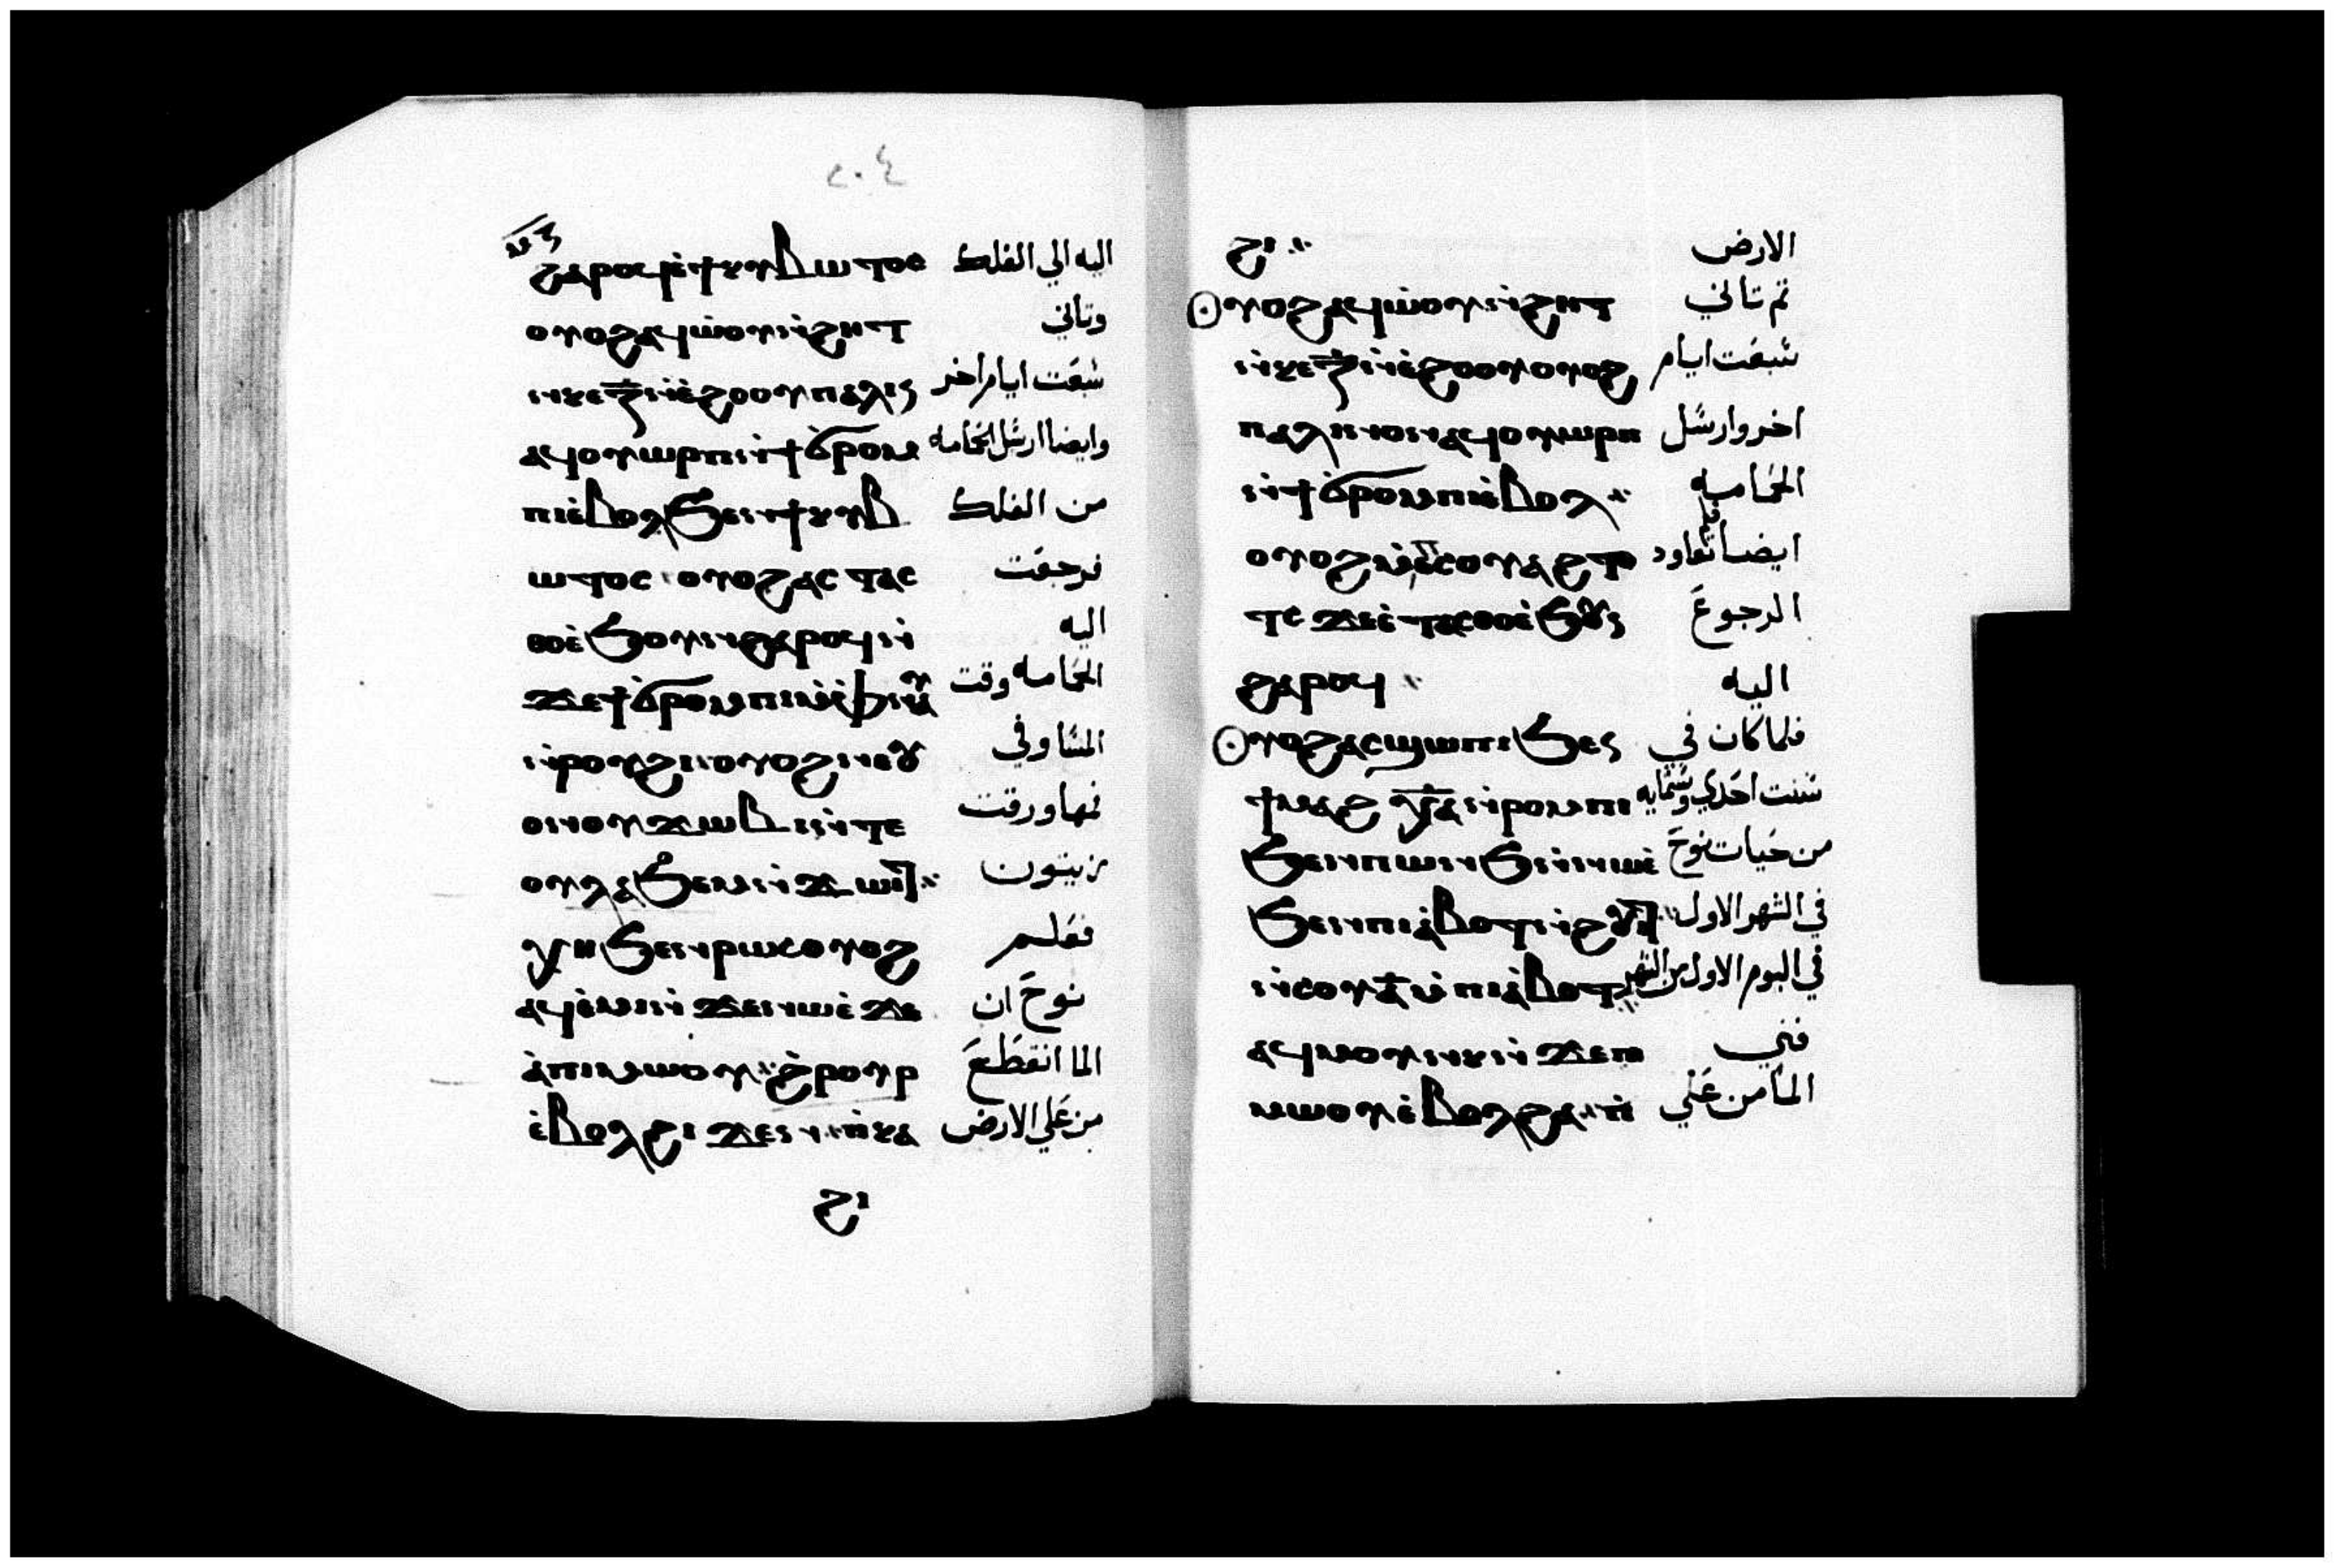 ٢٠٤
ϣⲁⲣⲟϥ ⲉ̀ϯⲕⲩⲃⲱⲧⲟⲥ اليه الي الفلك
ⲟⲩⲟϩ ⲁϥⲱ̀ⲟⲩ ⲛ̀ϩⲏⲧ وتاني
ⲛ̀ⲕⲉⲍ̅ ⲛ̀ⲉ̀ϩⲟⲟⲩ ⲡⲁⲗⲓⲛ شبعت ايام اخر
ⲁϥⲟⲩⲱⲣⲡ ⲛ̀ϯϭ̀ⲣⲟⲙ وايضا ارسل الحمامه
ⲡⲓ ⲉ̀ⲃⲟⲗ ϧⲉⲛ ϯⲕⲩⲃ من الفلك
ⲱⲧⲟⲥ ⲟⲩⲟϩ ⲁⲥⲧⲁⲥ فرجعت
ⲑⲟ ⲉ̀ϧⲟⲩⲛ ϣⲁⲣⲟϥ ⲛ̀ اليه
ϫⲉ ϯϭ̀ⲣⲟⲙⲡⲓ ⲙ̀ⲫⲛⲁⲩ الحمامه وقت
ⲛ̀ⲣⲟⲩϩⲓ ⲟⲩⲟϩ ⲛⲉⲟⲩ المسا وفي
ⲟⲛ ⲟⲩϫⲱⲃⲓ ⲛ̀ⲧⲉ فمها ورقت
ⲟⲩⲗⲁϧⲉⲙ ⲛ̀ϫⲱⲓⲧ زيتون
ⲭⲏ ϧⲉⲛ ⲣⲱⲥ ⲟⲩⲟϩ فعلم
ⲁϥⲉ̀ⲙⲓ ⲛ̀ϫⲉ ⲛⲱⲉ̀ ϫⲉ نوح ان
ⲁ̀ ⲡⲓⲙⲱⲟⲩ ϩ̀ⲣⲟⲩⲣ الما انقطع
ⲉ̀ⲃⲟⲗ ϩⲓϫⲉⲛ ⲡ̀ⲕⲁ من علي الارض
ϩⲓ
ϩⲓ الارض
ⲟⲩⲟϩ ⲁϥⲱ̀ⲟⲩ ⲛ̀ϩⲏⲧ تم تاني
ⲛ̀ⲕⲉⲍ̅ ⲛ̀ⲉ̀ϩⲟⲟⲩ ⲟⲩⲟϩ شبعت ايام
ⲡⲁⲗⲓⲛ ⲟⲛ ⲁϥⲟⲩⲱⲣⲡ اخر وارسل
ⲛ̀ϯϭ̀ⲣⲟⲙⲡⲓ ⲉ̀ⲃⲟⲗ الحمامه
ⲟⲩⲟϩ ⲙ̀ⲡⲉⲥⲟⲩⲁϩⲧⲟ ايضا تعاود
ⲧⲥ ϫⲉ ⲉ̀ⲧⲁⲥⲑⲟ ⲉ̀ϧⲟⲩⲛ الرجوع
ϣⲁⲣⲟϥ اليه
ⲟⲩⲟϩ ⲁⲥϣⲱⲡⲓ ϧⲉⲛ فلما كان في
ϯⲙⲁϩ ⲭ̅ⲁ̅ ⲛ̀ⲣⲟⲙⲡⲓ سنت احدي وستمايه
ϧⲉⲛ ⲡⲱⲛϧ ⲛ̀ⲛⲱⲉ̀ من حيات نوح
ϧⲉⲛ ⲡⲓⲁ̀ⲃⲟⲧ ⲛ̀ϩⲟⲩⲓⲧ في الشهر الاول
ⲛ̀ⲥⲟⲩⲁ̅ ⲙ̀ⲡⲓⲁ̀ⲃⲟⲧ في اليوم الاول من الشهر
ⲁϥⲙⲟⲩⲛⲕ ⲛ̀ϫⲉ ⲡⲓ فني
ⲙⲱⲟⲩ ⲉ̀ⲃⲟⲗ ϩⲁ ⲡ̀ الما من علي